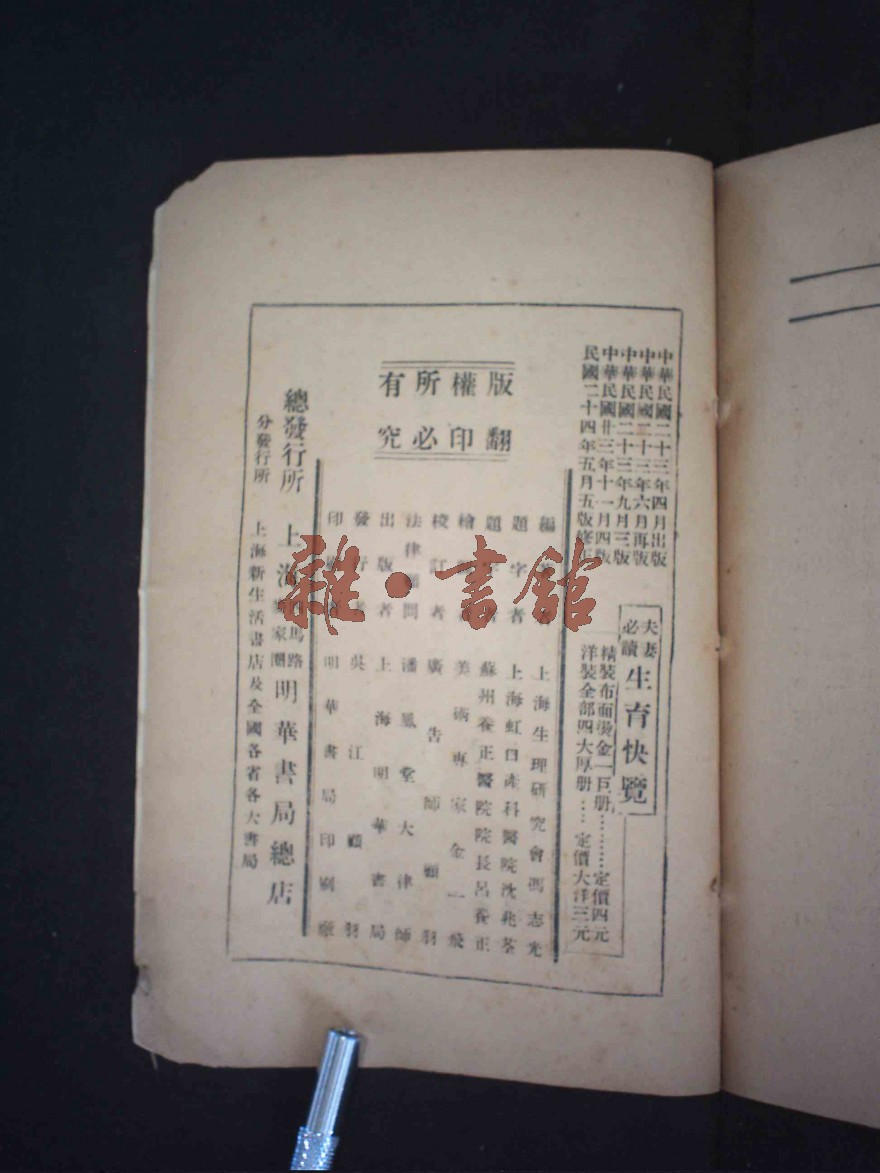 中華民國二十三年四月出版
中華民國二十三年六月再版
中華民國二十三年九月三版
中華民國廿三年十一月四版
民國二十四年五月五版修正
夫妻必讀
生育快覽
精裝布面燙金一巨册………定價四元
洋裝全部四大厚册…定價大洋三元
版權所有
翻印必究
編 者 上海生理研究會馮志光
題字者 上海虹口產科醫院沈兆荃
題 者 蘇州養正醫院院長呂養正
繪 美術專家金一飛
校訂者 廣告師顧羽
法律顧問 潘鳳堂大律師
出版者 上海明華書局
發行者 吳江顧羽
印 明華書局印刷廠
總發行所 上海 馬路 家 明華書局總店
分發行所 上海新生活書店及全國各省各大書局
雜·書館